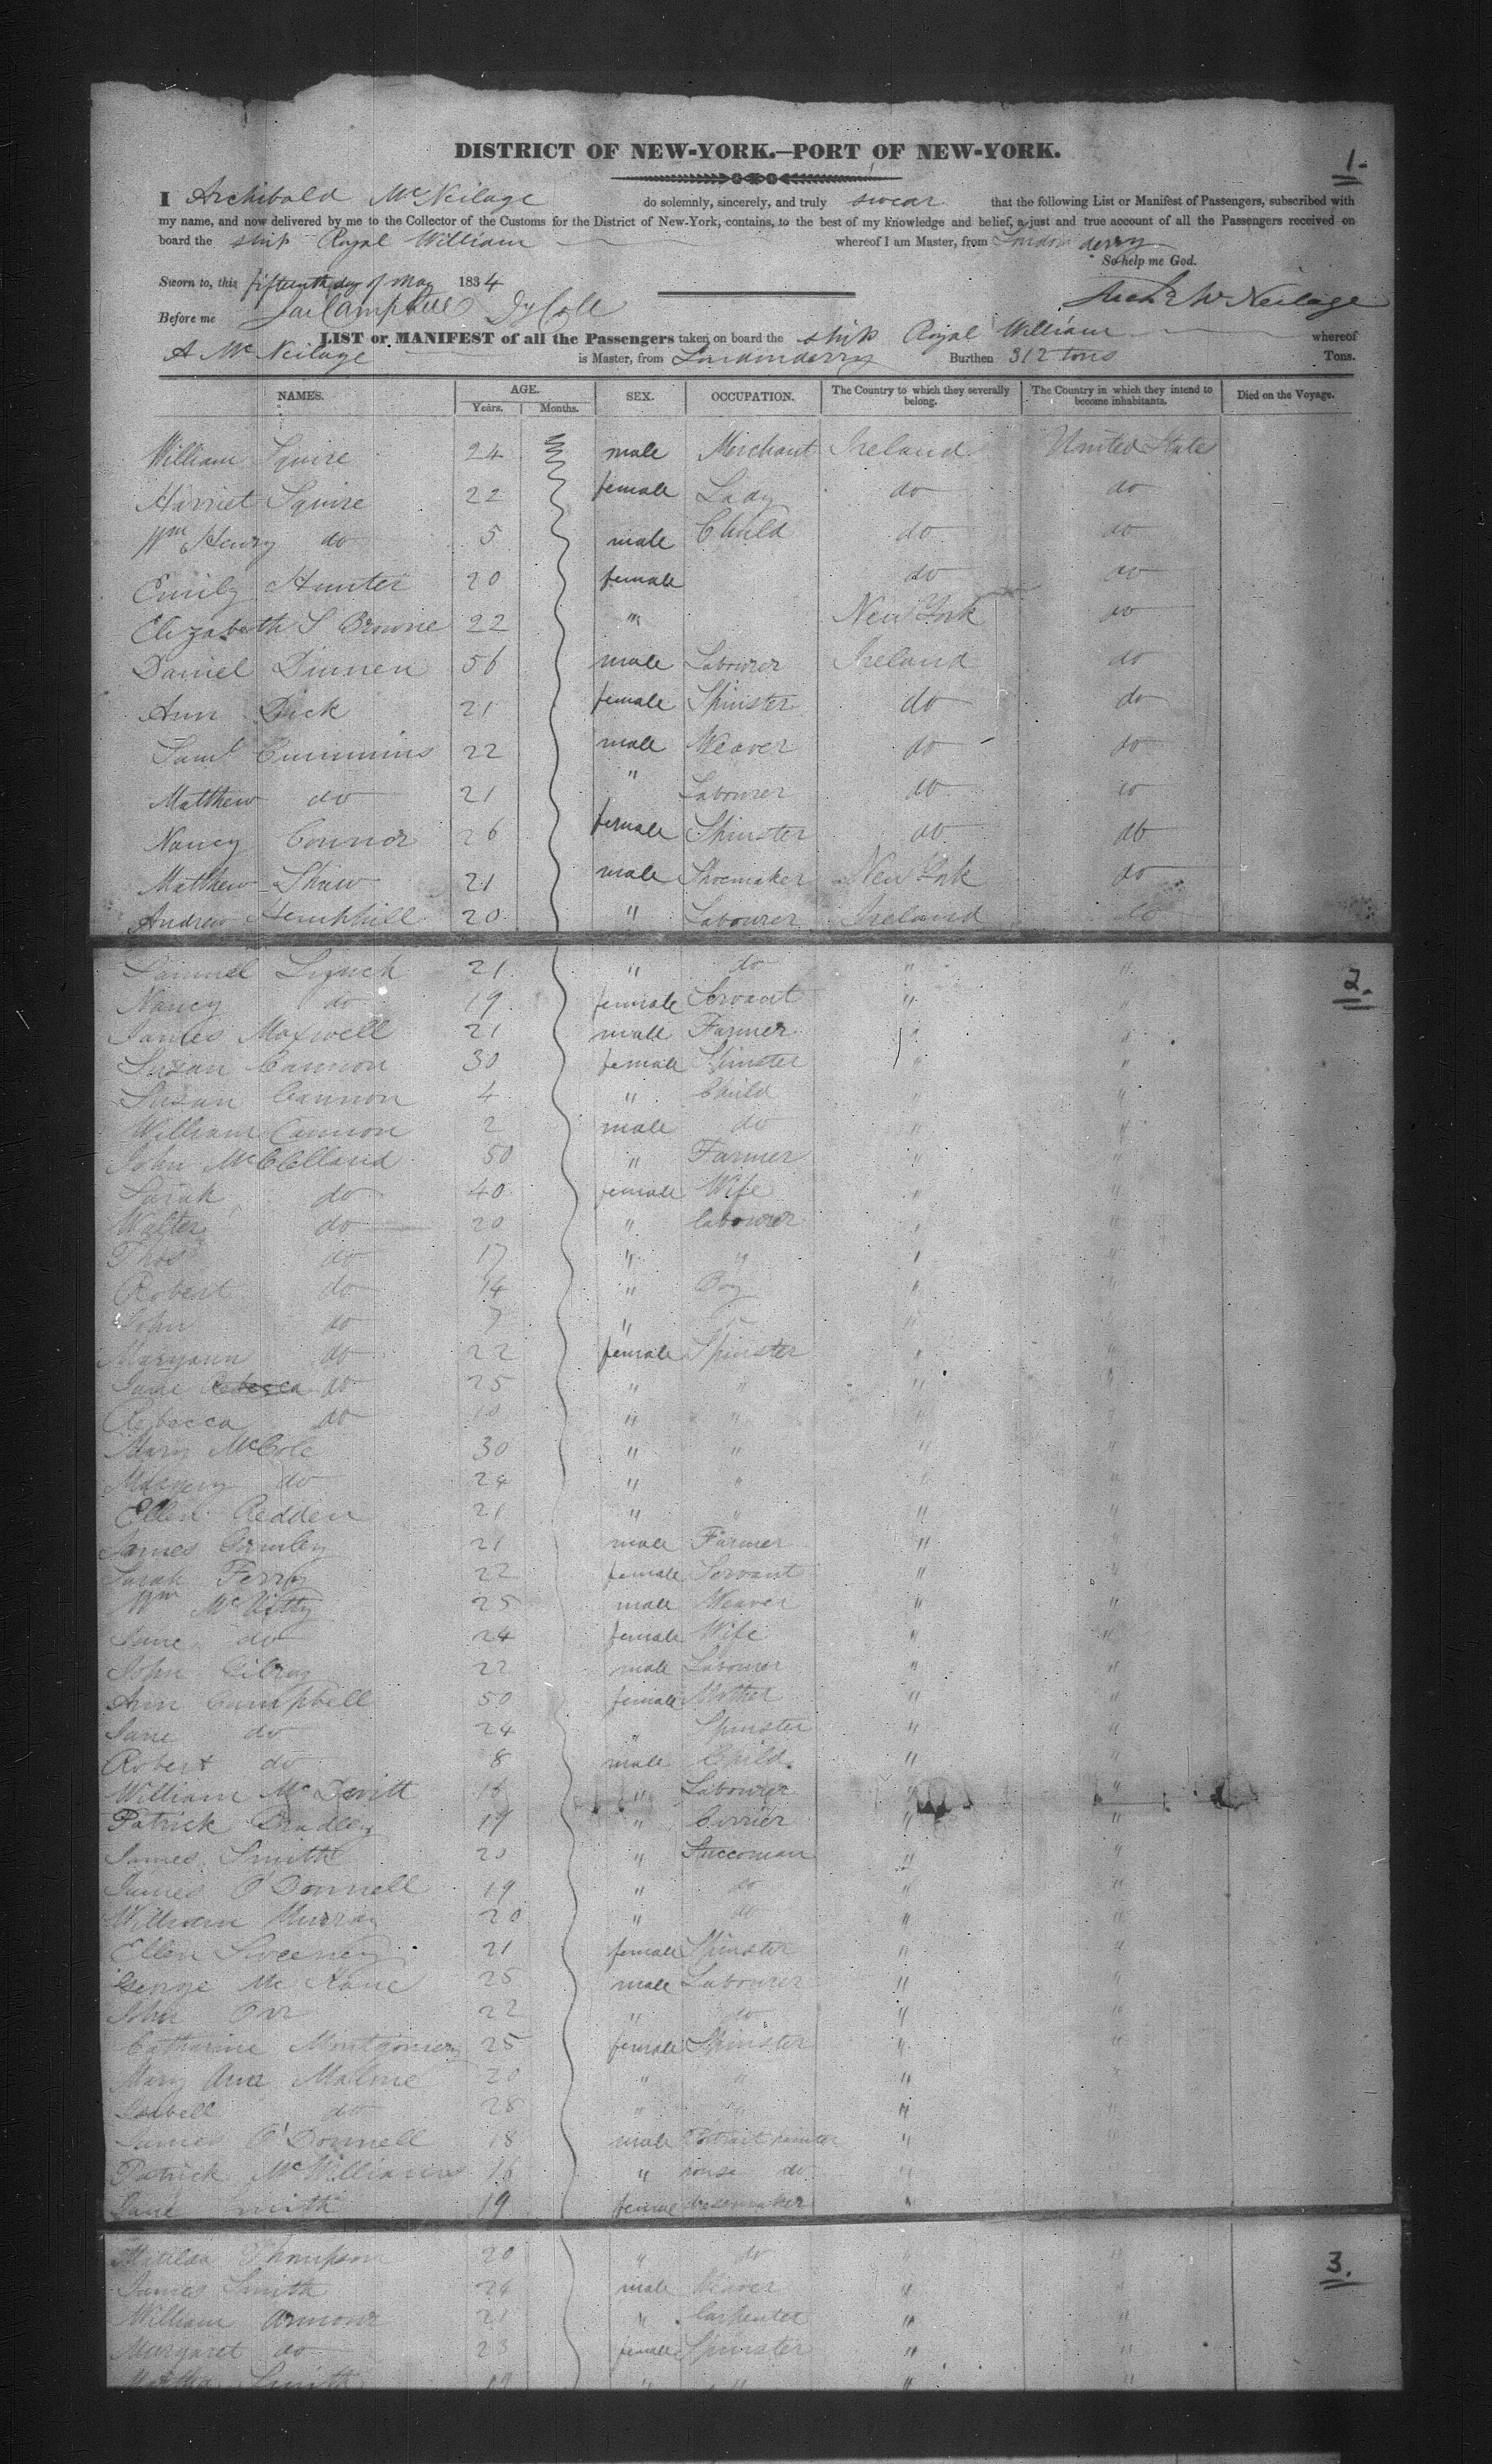 1.
DISTRICT OF NEW-YORK.—PORT OF NEW-YORK.
I Archibald McNeilage do solemnly, sincerely, and truly swear that the following List or Manifest of Passengers, subscribed with
my name, and now delivered by me to the Collector of the Customs for the District of New-York, contains, to the best of my knowledge and belief, a just and true account of all the Passengers received on
board the ship Royal William whereof I am Master, from Londonderry
So help me God.
Sworn to, this fifteenth day of May 1834
Before me Jas Campbell Dy Coll Arch McNeilage
LIST or MANIFEST of all the Passengers taken on board the ship Royal William whereof
A McNeilage is Master, from Londonderry Burthen 312 tons Tons.
NAMES. AGE. Years. Months. SEX. OCCUPATION. The Country to which they severally belong. The Country in which they intend to become inhabitants. Died on the Voyage.
William Squire 24 male Merchant Ireland United States
Harriet Squire 22 female Lady do do
Wm Henry do 5 male Child do do
Emily Hunter 20 female do do
Elizabeth S Browne 22 " New York do
Daniel Dinnen 56 male Labourer Ireland do
Ann Dick 21 female Spinster do do
Saml Cummins 22 male Weaver do do
Matthew do 21 " Labourer do do
Nancy Connor 26 female Spinster do do
Matthew Shaw 21 male Shoemaker New York do
Andrew Hemphill 20 " Labourer Ireland do
2.
Samuel Lynch 21 " do " "
Nancy do 19 female Servant " "
James Maxwell 21 male Farmer " "
Susan Cannon 30 female Spinster " "
Susan Cannon 4 " Child " "
William Cannon 2 male do " "
John McClelland 50 " Farmer " "
Sarah do 40 female Wife " "
Walter do 20 " labourer " "
Thos do 17 " " " "
Robert do 14 " Boy " "
John do 7 " " " "
Maryann do 22 female Spinster " "
Jane Rebecca do 25 " " " "
Rebecca do " " " "
Mary McCole 30 " " " "
Margery do 24 " " " "
Ellen Redden 21 " " " "
James Gormley 21 male Farmer " "
Sarah Ferry 22 female Servant " "
Wm McVitty 25 male Weaver " "
Jane do 24 female Wife " "
John Gilray 22 male Labourer " "
Ann Campbell 50 female Mother " "
Jane do 24 " Spinster " "
Robert do 8 male Child " "
William McDevitt 18 " Labourer " "
Patrick Bradley 19 " Currier " "
James Smith 20 " Stuccoman " "
James O'Donnell 19 " do " "
William Murray 20 " do " "
Ellen Sweeney 21 female Spinster " "
George McKane 25 male Labourer " "
John Orr 22 " do " "
Catharine Montgomery 25 female Spinster " "
Mary Ann Malone 20 " " " "
Isabell do 28 " " " "
James O'Donnell 18 male Portrait painter " "
Patrick McWilliams 16 " house do " "
Jane Smith 19 female dressmaker " "
3.
Matilda Thompson 20 " do " "
James Smith 26 male Weaver " "
William Armour 21 " Carpenter " "
Margaret do 23 female Spinster " "
Martha Smith 19 " " " "